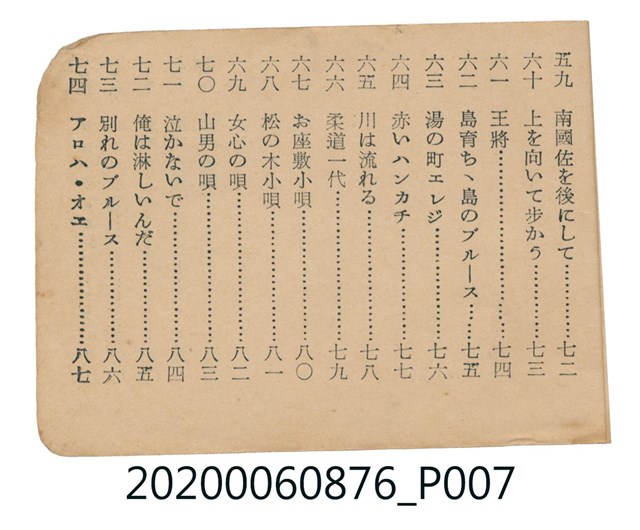 五九 南國佐を後にして…………七二
六十 上を向いて步かう…………七三
六一 王將…………七四
六二 島育ち、島のブルース…………七五
六三 湯の町エレジ…………七六
六四 赤いハンカチ…………七七
六五 川は流れる…………七八
六六 柔道一代…………七九
六七 お座敷小唄…………八〇
六八 松の木小唄…………八一
六九 女心の唄…………八二
七〇 山男の唄…………八三
七一 泣かないで…………八四
七二 俺は淋しいんだ…………八五
七三 別れのブルース…………八六
七四 アロハ・オエ…………八七
20200060876_P007